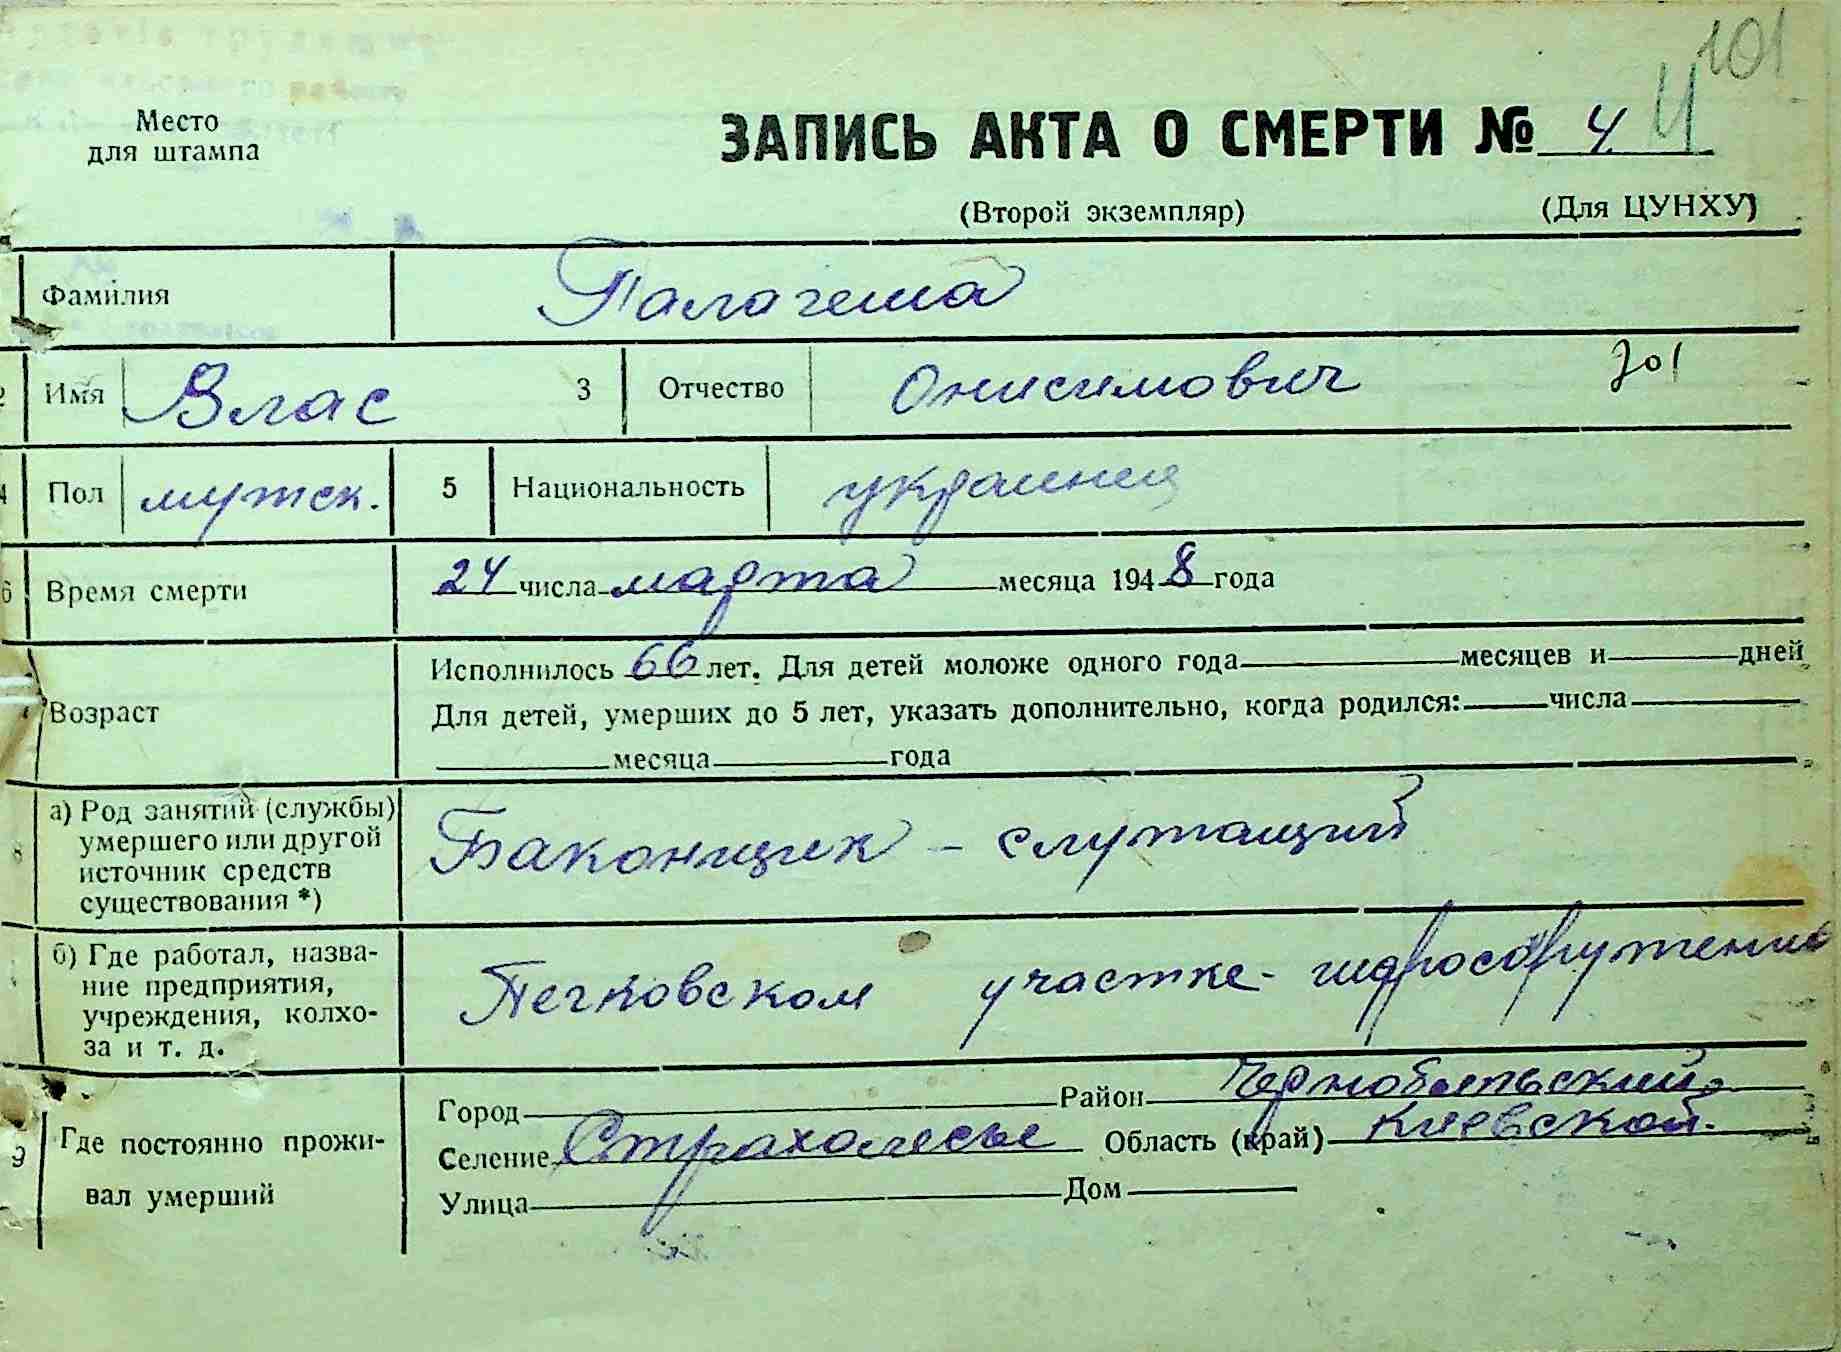 101
Место
для штампа
ЗАПИСЬ АКТА О СМЕРТИ № 4
(Второй экземпляр) (Для ЦУНХУ)
Фамилия Палагеша
2 Имя Влас 3 Отчество Онисимович 701
4 Пол мужск. 5 Национальность украинец
6 Время смерти 24 числа марта месяца 1948 года
Возраст
Исполнилось 66 лет. Для детей моложе одного года месяцев и дней
Для детей, умерших до 5 лет, указать дополнительно, когда родился: числа
месяца года
8 а) Род занятий (службы)
умершего или другой
источник средств
существования *)
Баконщик - служащий
б) Где работал, назва-
ние предприятия,
учреждения, колхо-
за и т. д.
Печковском участке- гидросооружение
9 Где постоянно прожи-
вал умерший
Город Район Чернобыльский
Селение Страхолесье Область (край) Киевской.
Улица Дом